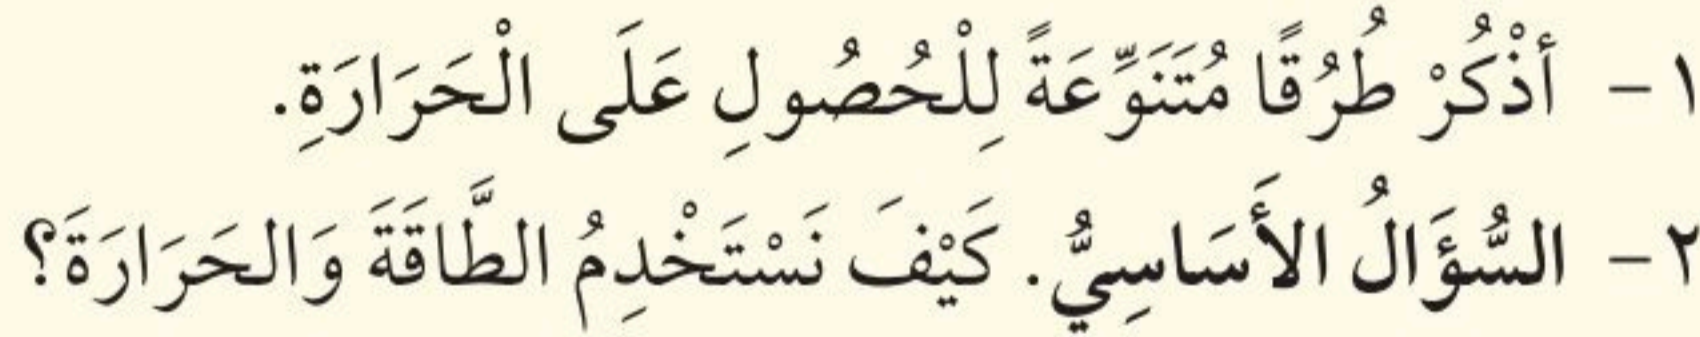 ١ - أذْكُرْ طُرُقًا مُتَنَوِّعَةً لِلْحُصُولِ عَلَى الْحَرَارَةِ.
٢ - السُّؤَالُ الأَسَاسِيُّ. كَيْفَ نَسْتَخْدِمُ الطَّاقَةَ وَالحَرَارَةَ؟